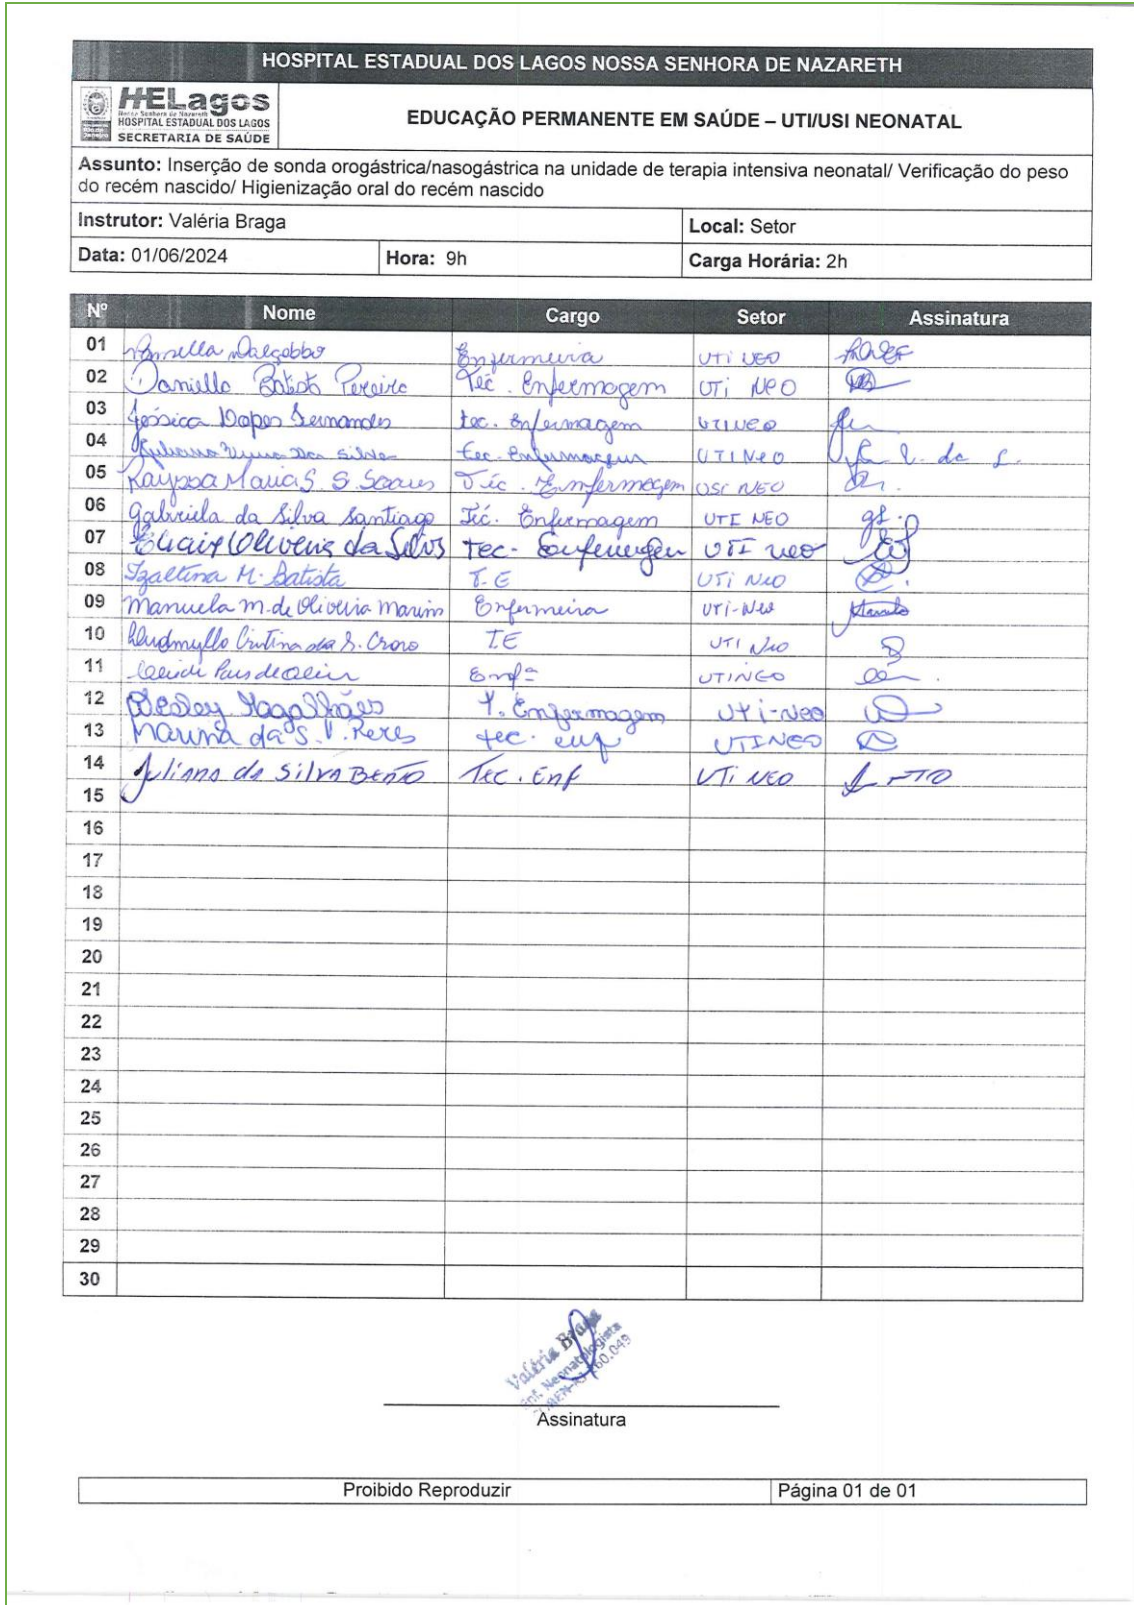 HOSPITAL ESTADUAL DOS LAGOS NOSSA SENHORA DE NAZARETH
HELagos
Nossa Senhora de Nazareth
HOSPITAL ESTADUAL DOS LAGOS
SECRETARIA DE SAÚDE
EDUCAÇÃO PERMANENTE EM SAÚDE – UTI/USI NEONATAL
Assunto: Inserção de sonda orogástrica/nasogástrica na unidade de terapia intensiva neonatal/ Verificação do peso
do recém nascido/ Higienização oral do recém nascido
Instrutor: Valéria Braga Local: Setor
Data: 01/06/2024 Hora: 9h Carga Horária: 2h
Nº Nome Cargo Setor Assinatura
01 Enfermeira UTI NEO
02 Danielle Batista Pereira Téc. Enfermagem UTI NEO
03 Jéssica Lopes Fernandes tec. enfermagem UTI NEO
04 da Silva tec. enfermagem UTI Neo
05 Rayssa Maria S. S. Soares Téc. Enfermagem USI NEO
06 Gabriela da Silva Santiago Téc. Enfermagem UTI NEO
07 Oliveira da Silva Tec. Enfermagem UTI neo
08 Izaltina M. Batista T.E UTI Neo
09 Manuela M. de Oliveira Marins Enfermeira UTI-Neo
10 Cristina da S. TE UTI Neo
11 Enfª UTINEO
12 Wesley Magalhães T. Enfermagem UTI-Neo
13 Marina da S. V. Peres tec. enf UTINEO
14 Juliana da Silva Bento Tec. Enf UTI NEO
15
16
17
18
19
20
21
22
23
24
25
26
27
28
29
30
Valéria Braga
Enf. Neonatologista
Assinatura
Proibido Reproduzir Página 01 de 01